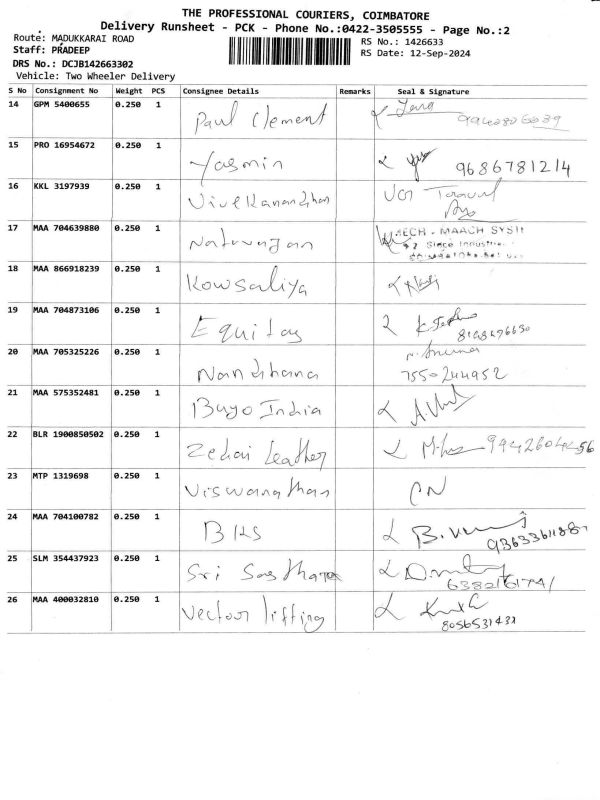 THE PROFESSIONAL COURIERS, COIMBATORE
Delivery Runsheet - PCK - Phone No.:0422-3505555 - Page No.:2
Route: MADUKKARAI ROAD
RS No.: 1426633
Staff: PRADEEP
RS Date: 12-Sep-2024
DRS No.: DCJB142663302
Vehicle: Two Wheeler Delivery
S No Consignment No Weight PCS Consignee Details Remarks Seal & Signature
14 GPM 5400655 0.250 1 Paul Clement
15 PRO 16954672 0.250 1 Yasmin 9686781214
16 KKL 3197939 0.250 1 Vivekanandhan
17 MAA 704639880 0.250 1 Natarajan MECH - MAACH SYST
18 MAA 866918239 0.250 1 Kowsaliya
19 MAA 704873106 0.250 1 Equitas
20 MAA 705325226 0.250 1 Nandhana 7550244952
21 MAA 575352481 0.250 1 Buyo India
22 BLR 1900850502 0.250 1 Leather 9942604456
23 MTP 1319698 0.250 1 Viswanathan CN
24 MAA 704100782 0.250 1
25 SLM 354437923 0.250 1 Sri Sastha
26 MAA 400032810 0.250 1 Vector lifting 8056531431